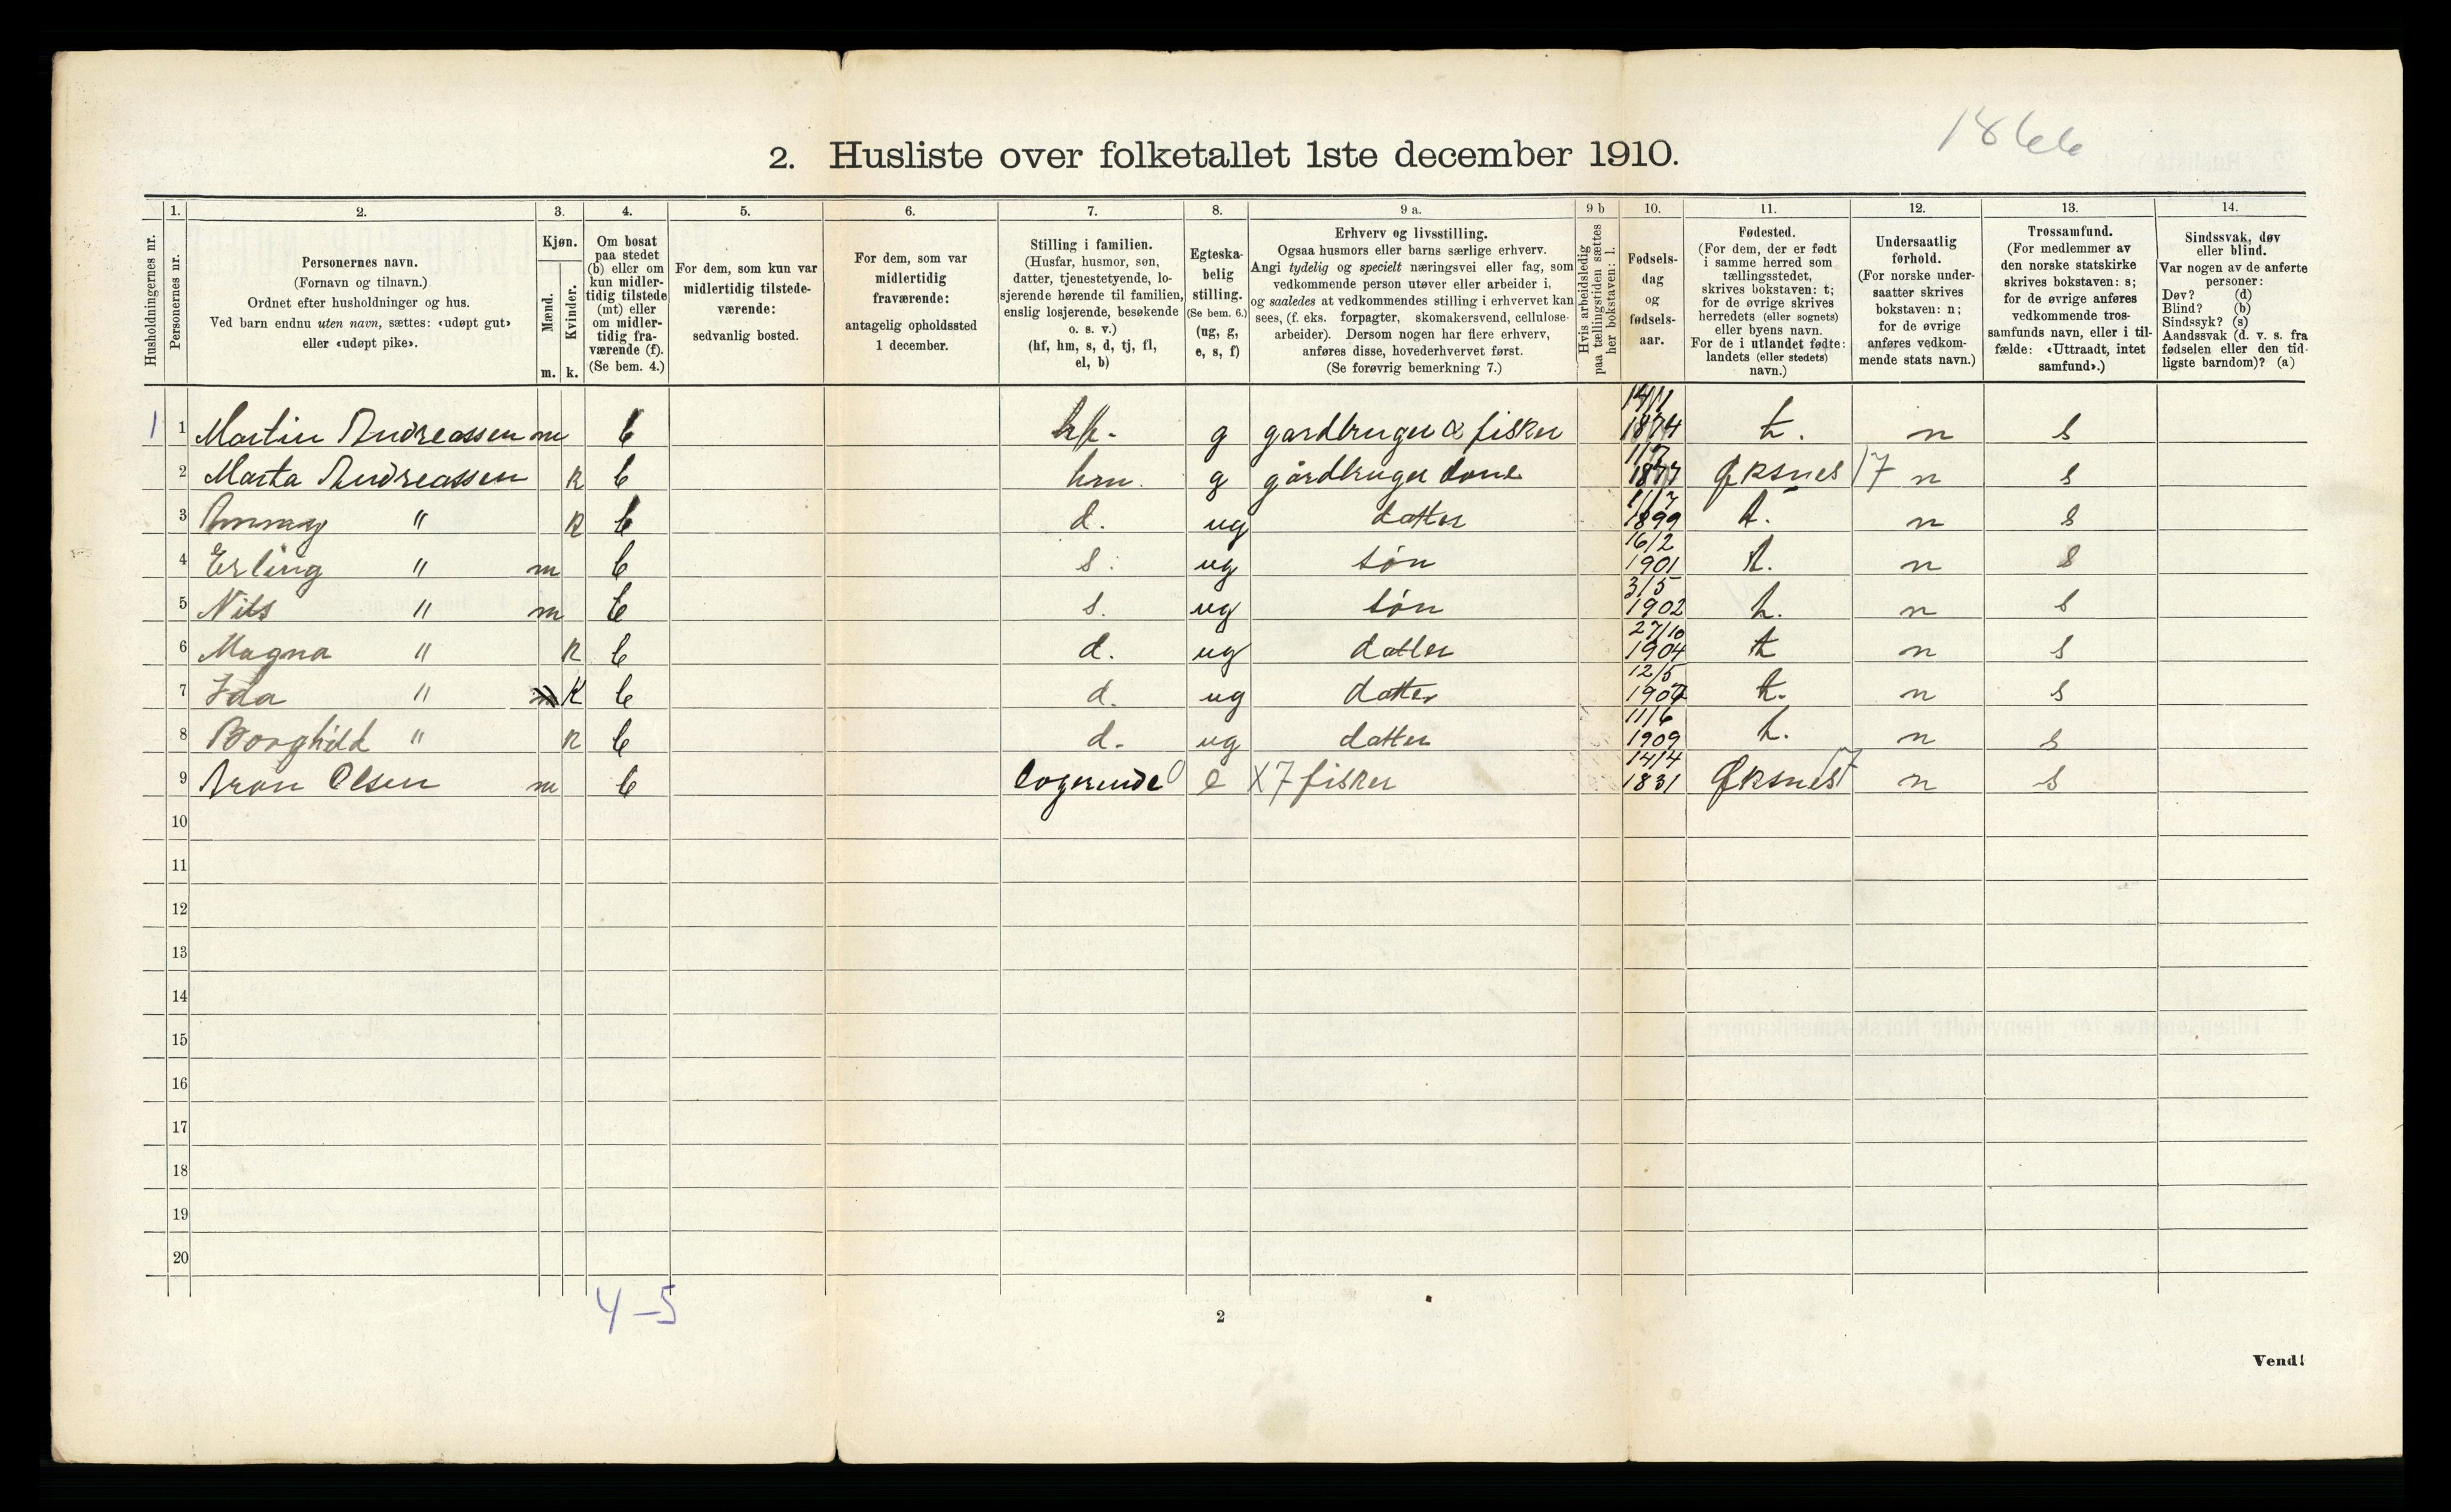 1866
2. Husliste over folketallet 1ste december 1910.
1. 2. 3. 4. 5. 6. 7. 8. 9 a. 9 b 10. 11. 12. 13. 14.
Husholdningernes nr.
Personernes nr.
Personernes navn.
(Fornavn og tilnavn.)
Ordnet efter husholdninger og hus.
Ved barn endnu uten navn, sættes: «udøpt gut»
eller «udøpt pike».
Kjøn.
Mænd.
Kvinder.
m. k.
Om bosat
paa stedet
(b) eller om
kun midler-
tidig tilstede
(mt) eller
om midler-
tidig fra-
værende (f).
(Se bem. 4.)
For dem, som kun var
midlertidig tilstede-
værende:
sedvanlig bosted.
For dem, som var
midlertidig
fraværende:
antagelig opholdssted
1 december.
Stilling i familien.
(Husfar, husmor, søn,
datter, tjenestetyende, lo-
sjerende hørende til familien,
enslig losjerende, besøkende
o. s. v.)
(hf, hm, s, d, tj, fl,
el, b)
Egteska-
belig
stilling.
(Se bem. 6.)
(ug, g,
e, s, f)
Erhverv og livsstilling.
Ogsaa husmors eller barns særlige erhverv.
Angi tydelig og specielt næringsvei eller fag, som
vedkommende person utøver eller arbeider i,
og saaledes at vedkommendes stilling i erhvervet kan
sees, (f. eks. forpagter, skomakersvend, cellulose-
arbeider). Dersom nogen har flere erhverv,
anføres disse, hovederhvervet først.
(Se forøvrig bemerkning 7.)
Hvis arbeidsledig
paa tællingstiden sættes
her bokstaven: l.
Fødsels-
dag
og
fødsels-
aar.
Fødested.
(For dem, der er født
i samme herred som
tællingsstedet,
skrives bokstaven: t;
for de øvrige skrives
herredets (eller sognets)
eller byens navn.
For de i utlandet fødte:
landets (eller stedets)
navn.)
Undersaatlig
forhold.
(For norske under-
saatter skrives
bokstaven: n;
for de øvrige
anføres vedkom-
mende stats navn.)
Trossamfund.
(For medlemmer av
den norske statskirke
skrives bokstaven: s;
for de øvrige anføres
vedkommende tros-
samfunds navn, eller i til-
fælde: «Uttraadt, intet
samfund».)
Sindssvak, døv
eller blind.
Var nogen av de anførte
personer:
Døv? (d)
Blind? (b)
Sindssyk? (s)
Aandssvak (d. v. s. fra
fødselen eller den tid-
ligste barndom)? (a)
1 1 Martin Andreassen m b hf. g gardbruger & fisker 1874 t. n s
2 Marta Andreassen k b hm. g gårdbruger kone 1877 Øksnes 17 n s
3 " k b d. ug datter 11/7 1899 t. n s
4 Erling " m b s. ug søn 16/2 1901 t. n s
5 Nils " m b s. ug søn 3/5 1902 t. n s
6 Magna " k b d. ug datter 27/10 1904 t n s
7 Ida " K b d. ug datter 12/5 1907 t. n s
8 Borghild " k b d. ug datter 11/6 1909 t. n s
9 Aron Olsen m b logerende e X7 fisker 14/4 1831 Øksnes 17 n s
10
11
12
13
14
15
16
17
18
19
20
4-5
2
Vend!